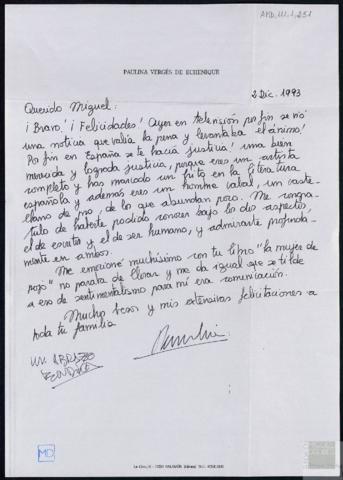 AMD,111,1,251
PAULINA VERGÉS DE ECHENIQUE
2 Dic. 1993
Querido Miguel:
¡Bravo! ¡Felicidades! Ayer en televisión por fin se vió
una noticia que valía la pena y levantaba el ánimo!
Por fin en España se te hacía justicia! una bien
merecida y lograda justicia, porque eres un artista
completo y has marcado un hito en la literatura
española y además eres un hombre cabal, un caste-
llano de pro, de los que abundan poco. Me congra-
tulo de haberte podido conocer bajo los dos aspectos
el de escritor y el de ser humano, y admirarte profunda-
mente en ambos.
Me emocioné muchísimo con tu libro "la mujer de
rojo" no paraba de llorar y me da igual que se tilde
a eso de sentimentalismo para mí era comunicación.
Mucho besos y mis extensivas felicitaciones a
toda tu familia
UN ABRAZO
MD